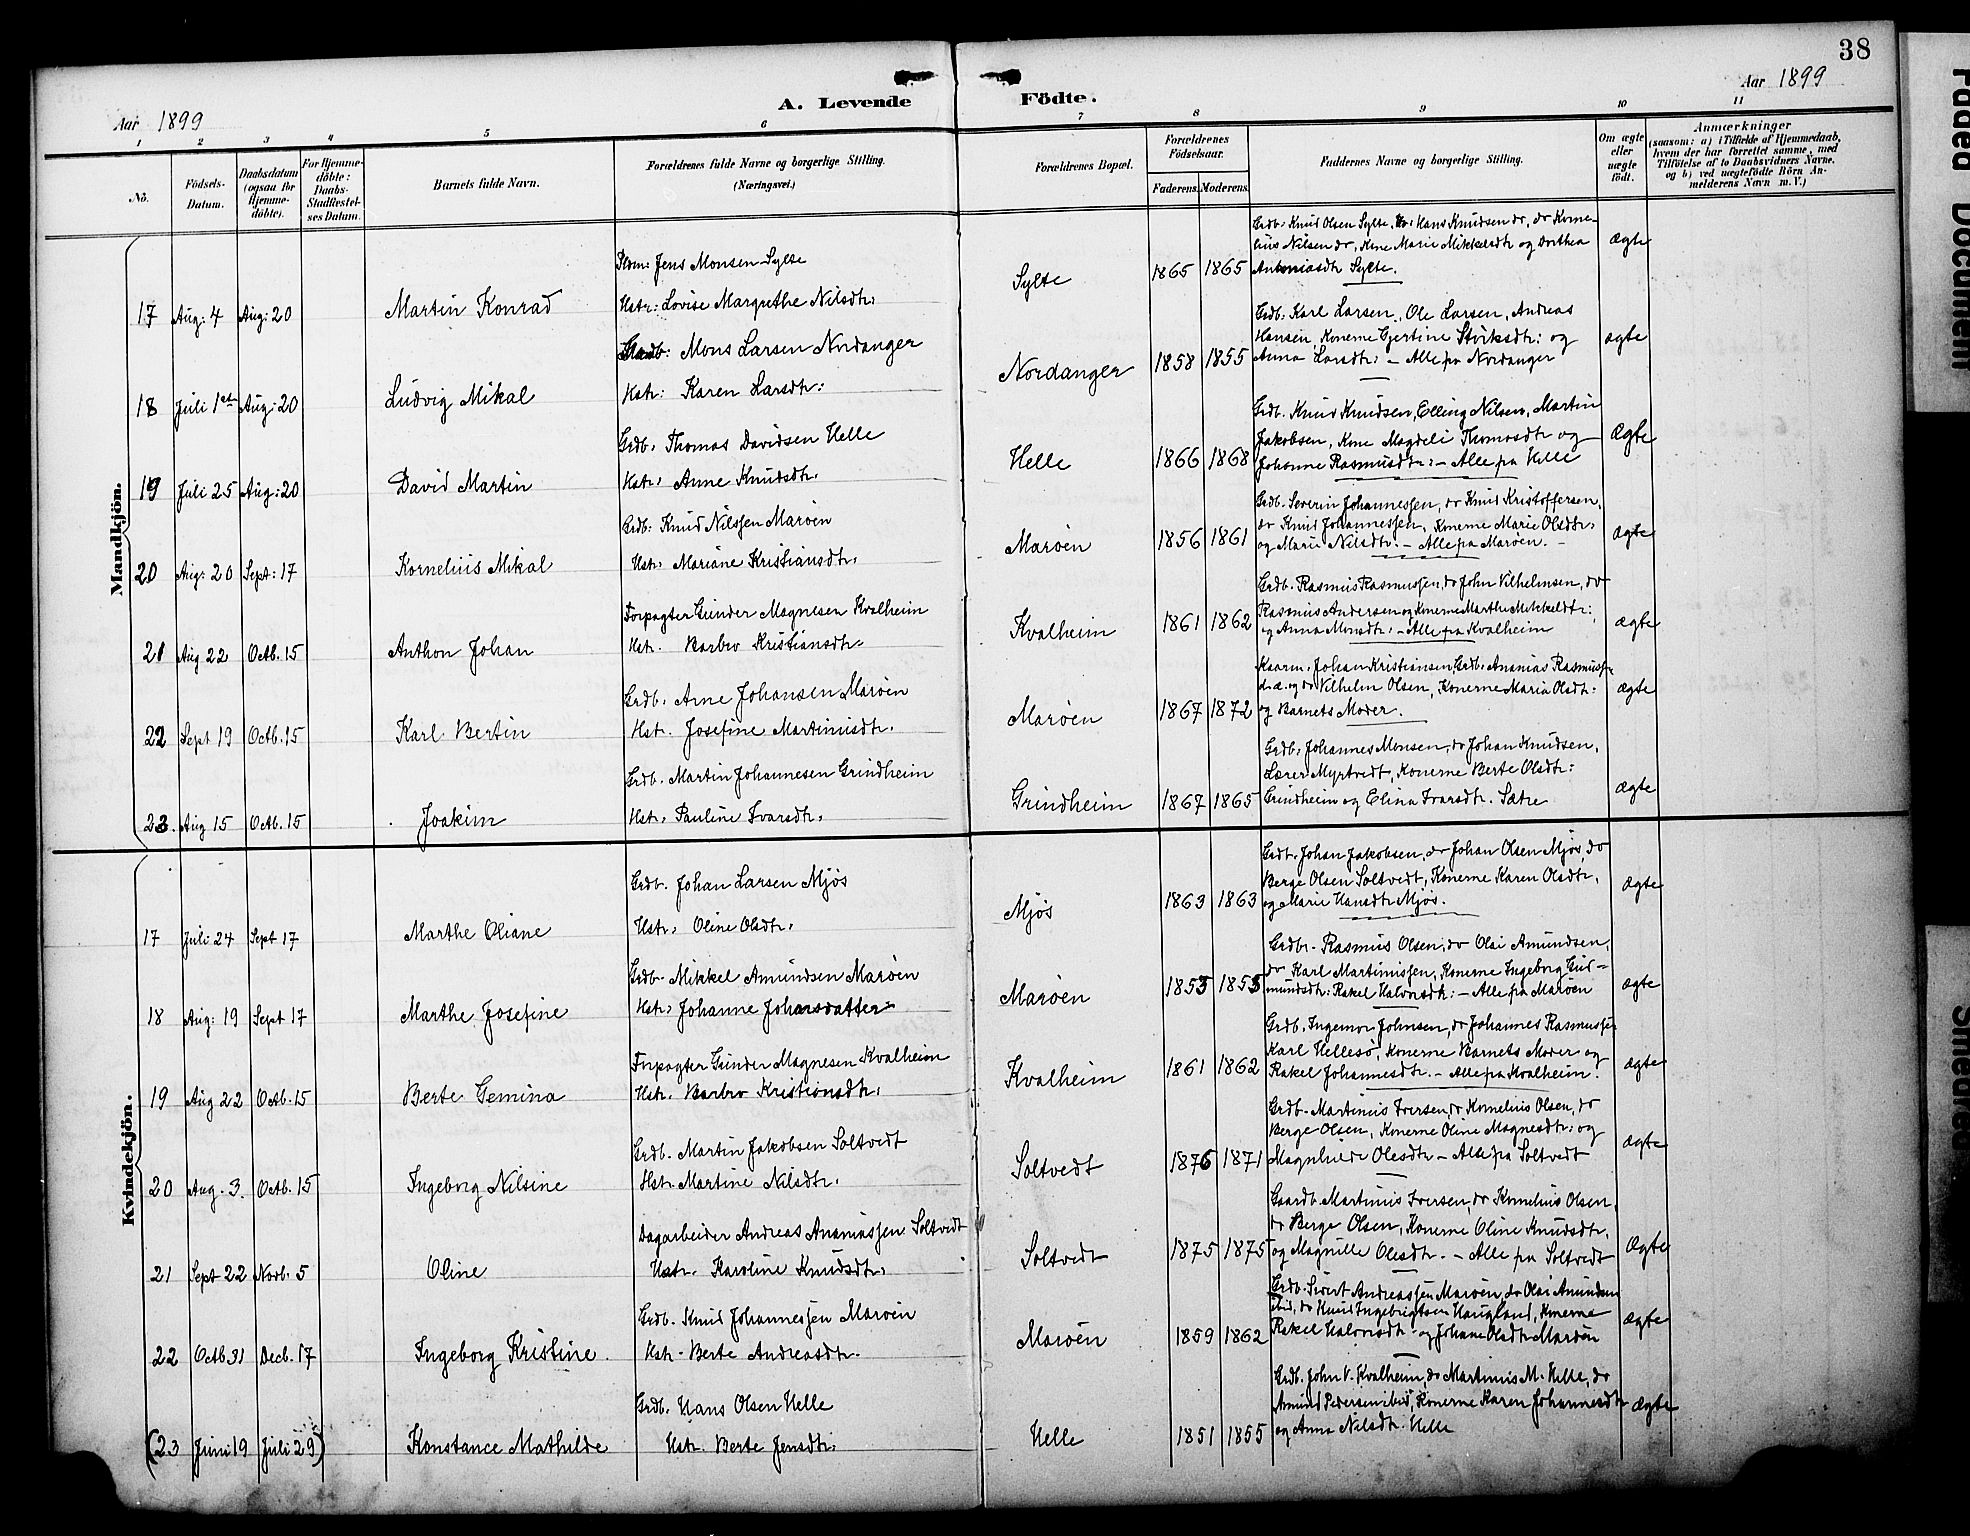 38
Aar 1899
A. Levende Födte.
Aar 1899
1 2 3 4 5 6 7 8 9 10 11
No.
Födsels-Datum.
Daabsdatum (ogsaa for Hjemme-döbte).
For Hjemme-döbte: Daabs-Stadfæstel-ses Datum.
Barnets fulde Navn.
Forældrenes fulde Navne og borgerlige Stilling.
(Næringsvei.)
Forældrenes Bopæl.
Forældrenes Födselsaar.
Faderens. Moderens.
Faddernes Navne og borgerlige Stilling.
Om ægte eller uægte födt.
Anmærkninger
(saasom: a) i Tilfælde af Hjemmedaab,
hvem der har forrettet samme, med
Tilföielse af to Daabsvidners Navne.
og b) ved uægtefödte Börn An-
melderens Navn m. V.)
Mandkjön.
17 Aug: 4 Aug: 20 Martin Konrad
Jens Monsen Sylte
Hstr: Lovise Margrethe Nilsdtr:
Sylte 1865 1865
Grdb: Knud Olsen Sylte, Hans Knudsen do, do Korne-
lius Nilsen do, Kone Marie Mikkelsdtr og Dorthea
Antoniasdtr Sylte.
Ægte
18 Juli 1st Aug: 20 Ludvig Mikal
Grdb: Mons Larsen Nordanger
Hstr: Karen Larsdtr:
Nordanger 1858 1855
Grdb: Karl Larsen, Ole Larsen, Andreas
Hansen, Konerne Gjertine Störksdtr: og
Anna Larsdtr: - Alle fra Nordanger
ægte
19 Juli 25 Aug: 20 David Martin
Grdb: Thomas Davidsen Helle
Hstr: Anne Knudsdtr.
Helle 1866 1868
Grdb. Knud Knudsen, Elling Nilsen, Martin
Jakobsen, Kone Magdeli Thomasdtr og
Johanne Rasmusdtr: - Alle fra Helle
Ægte
20 Aug: 20 Sept: 17 Kornelius Mikal
Grdb: Knud Nilssen Maröen
Hstr: Mariane Kristiansdtr.
Maröen 1856 1861
Grdb. Severin Johannessen, do Knud Kristoffersen,
do Knud Johannessen, Konerne Marie Olsdtr:
og Marie Nilsdtr. - Alle fra Maröen. -
ægte
21 Aug 22 Octb. 15 Anthon Johan
Forpagter Gunder Magnesen Kvalheim
Hstr. Barbro Kristiansdtr.
Kvalheim 1861 1862
Grdb. Rasmus Rasmussen, do John Vilhelmsen, do
Rasmus Andersen og Konerne Marthe Mikkelsdtr:
og Anna Monsdtr. - Alle fra Kvalheim
ægte
22 Sept 19 Octb. 15 Karl Bertin
Grdb. Arne Johansen Maröen
Hstr. Josefine Martinusdtr.
Maröen 1867 1872
Johan Kristiansen, Grdb. Ananias Rasmuss.
og do Vilhelm Olsen, Konerne Maria Olsdtr:
og Barnets Moder.
ægte
23. Aug 15 Octb. 15 Joakim
Grdb. Martin Johannesen Grindheim
Hstr. Pauline Ivarsdtr.
Grindheim 1867 1865
Grdb: Johannes Monsen, do Johan Knudsen,
Lærer Myrtvedt, Konerne Berte Olsdtr:
Grindheim og Elina Ivarsdtr. Sætre
ægte
Kvindekjön.
17 Juli 24 Sept 17 Marthe Oliane
Grdb. Johan Larsen Mjös
Hstr: Oline Olsdtr:
Mjös 1863 1863
Grdb. Johan Jakobsen, do Johan Olsen Mjös, do
Berge Olsen Soltvedt, Konerne Karen Olsdtr,
og Marie Hansdtr Mjös.
ægte
18 Aug: 19 Sept 17 Marthe Josefine
Grdb. Mikkel Amundsen Maröen
Hstr: Johanne Johansdatter
Maröen 1853 1855
Grdbr. Rasmus Olsen, do Olai Amundsen,
do Karl Martinussen, Konerne Ingeborg Gud-
mundsdtr: Rakel Halvorsdtr: - Alle fra Maröen
ægte
19 Aug 22 Octb. 15 Berte Gemina
Forpagter Gunder Magnesen Kvalheim
Hstr. Barbro Kristiansdtr:
Kvalheim 1861 1862
Grdb. Ingemor Johnsen, do Johannes Rasmussen
Karl Hellesö, Konerne Barnets Moder og
Rakel Johannesdtr. - Alle fra Kvalheim.
ægte
20 Aug. 3. Octb. 15 Ingeborg Nilsine
Grdb. Martin Jakobsen Soltvedt
Hstr. Martine Nilsdtr.
Soltvedt 1876 1871
Grdb. Martinus Iversen, do Kornelius Olsen, do
Berge Olsen, Konerne Oline Magnesdtr: og
Magnhilde Olesdtr - Alle fra Soltvedt
ægte
21 Sept 22 Novb. 5 Oline
Dagarbeider Andreas Ananiassen Soltvedt
Hstr. Karoline Knudsdtr:
Soltvedt 1875 1875
Gaardb. Martinus Iversen, do Kornelius Olsen,
do Berge Olsen, Konerne Oline Knudsdtr,
og Magnille Olesdtr. - Alle fra Soltvedt
Ægte
22 Octb 31 Decb. 17 Ingeborg Kristine.
Grdb. Knud Johannessen Maröen
Hstr. Berte Andreasdtr.
Maröen 1859 1862
Grdb. Sivert Andreassen Maröen, do Olai Amundsen
ibid, do Knud Ingebrigtsen Haugland, Konerne
Rakel Halvorsdtr og Johane Olsdtr Maröen
ægte
(23 Juni 19 Juli 29) Konstance Mathilde
Grdb. Hans Olsen Helle
Hstr. Berte Jensdtr:
Helle 1851 1855
Grdb. John V. Kvalheim, do Martinus M. Helle, do
Amund Pedersen ibid, Konerne Karen Johannesdtr
og Anna Nilsdtr. Helle
ægte
Faded Document
Smeared